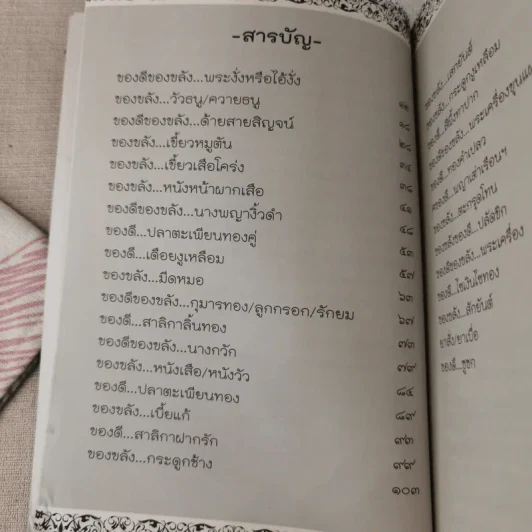 -สารบัญ-
ของดีของขลัง...พระงั่งหรือไอ้งั่ง
ของขลัง...วัวธนู/ควายธนู ๑๑
ของดีของขลัง...ด้ายสายสิญจน์ ๑๘
ของขลัง...เขี้ยวหมูตัน ๒๘
ของขลัง...เขี้ยวเสือโคร่ง ๓๔
ของขลัง...หนังหน้าผากเสือ ๓๘
ของดีของขลัง...นางพญางิ้วดำ ๔๑
ของดี...ปลาตะเพียนทองคู่ ๔๘
ของดี...เดือยงูเหลือม ๕๓
ของขลัง...มีดหมอ ๕๗
ของดีของขลัง...กุมารทอง/ลูกกรอก/รักยม ๖๓
ของดี...สาลิกาลิ้นทอง ๖๗
ของดีของขลัง...นางกวัก ๗๓
ของขลัง...หนังเสือ/หนังวัว ๗๙
ของดี...ปลาตะเพียนทอง ๘๔
ของขลัง...เบี้ยแก้ ๘๙
ของดี...สาลิกาฝากรัก ๙๓
ของขลัง...กระดูกช้าง ๙๙
๑๐๓
ของขลัง...เลกยันต์
ของขลัง...กระดูกงูเหลือม
ของดี...สีผึ้งทาปาก
ของดีของขลัง...พระเครื่องขุนแผน
ของดี...ทองคำเปลว
ของดี...พญาเต่าเรือนฯ
ของขลัง...ตะกรุดโทน
ของขลังของดี...ปลัดขิก
ของดีของขลัง...พระเครื่อง
ของดี...ไซเงินไซทอง
ของขลัง...สักยันต์
ยาสั่ง/ยาเบื่อ
ของดี...ชูชก